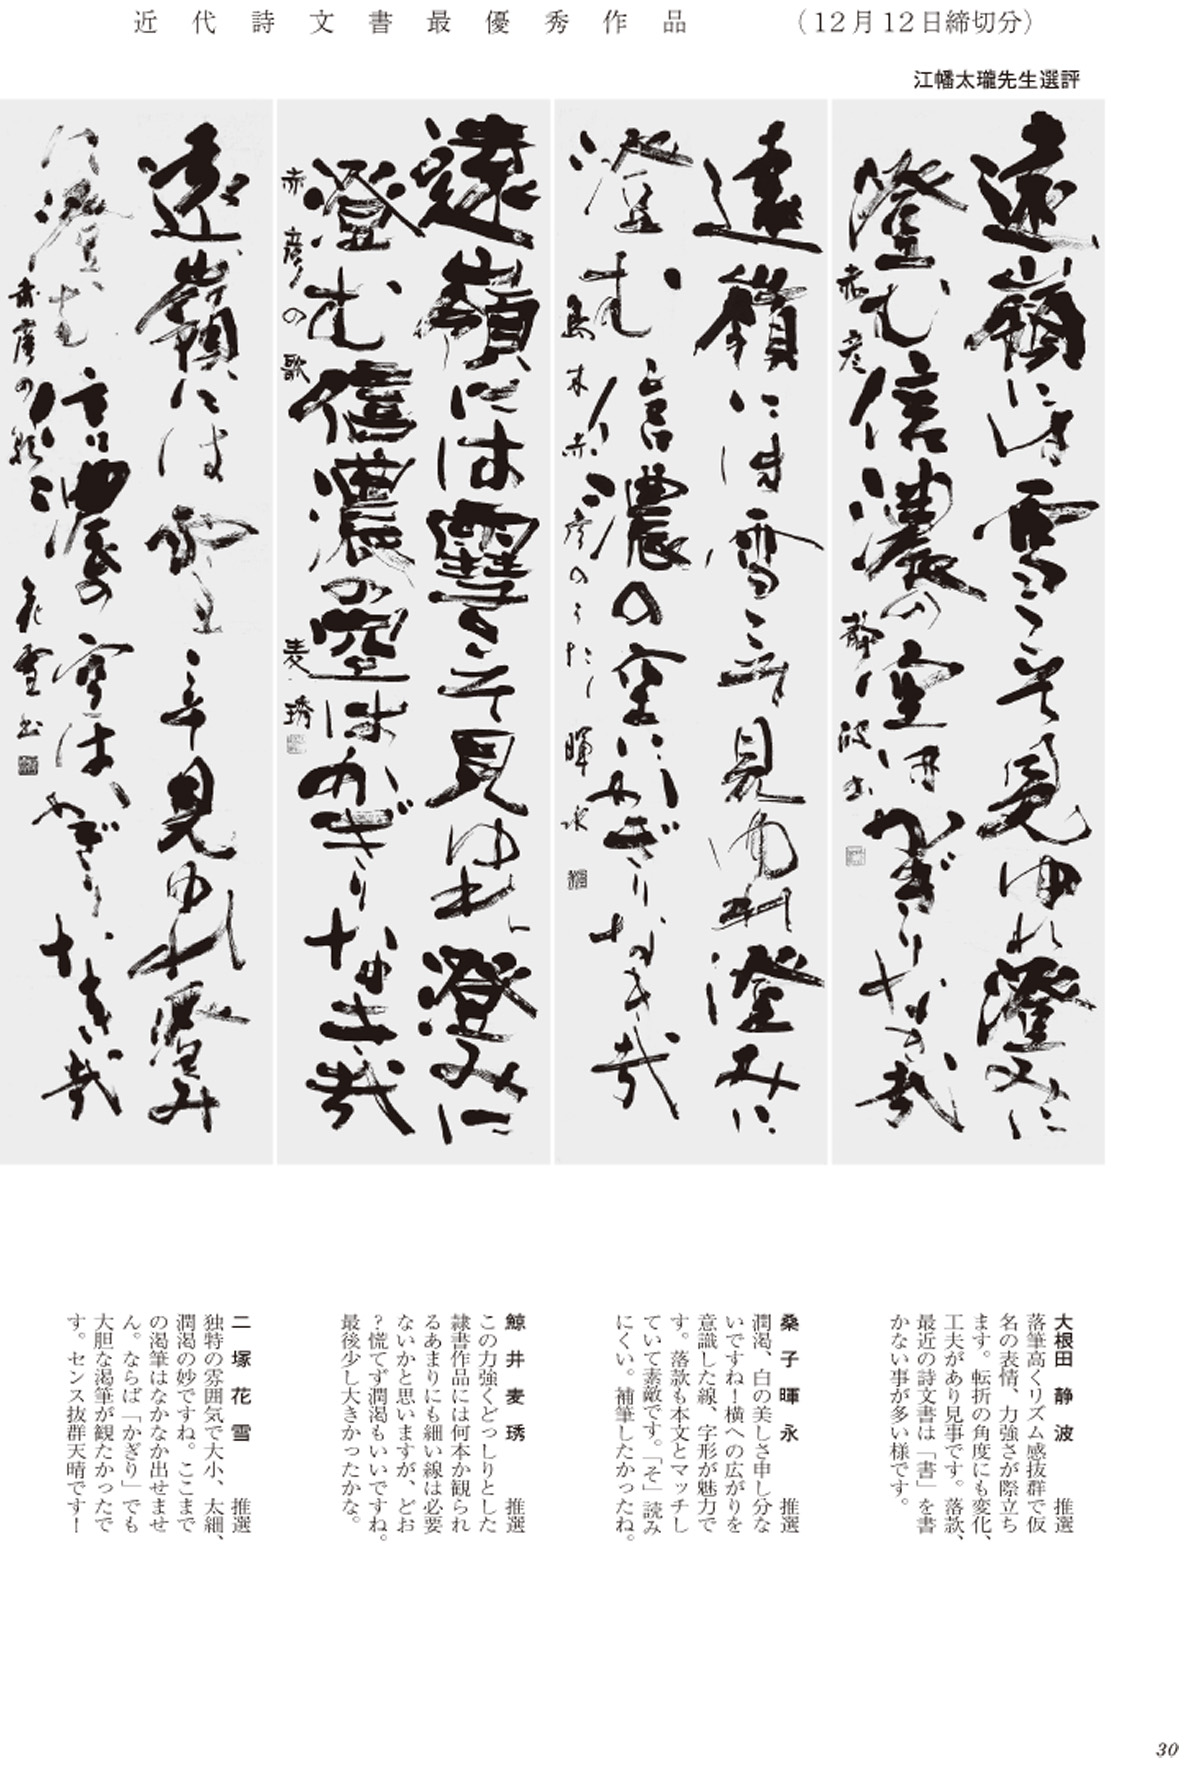 近代詩文書最優秀作品 （12月12日締切分）
江幡太瓏先生選評
遠嶺には雪こそ見ゆれ澄みに
澄む信濃の空はかぎりなき哉
赤彦 静波書
遠嶺には雪こそ見ゆれ澄みに
澄む信濃の空はかぎりなき哉
島木赤彦のうた 暉永
遠嶺には雪こそ見ゆれ澄みに
澄む信濃の空はかぎりなき哉
赤彦の歌 麦琇
遠嶺には雪こそ見ゆれ澄み
に澄む信濃の空はかぎりなき哉
赤彦の歌 花雪書
大根田 静波 推選
落筆高くリズム感抜群で仮
名の表情、力強さが際立ち
ます。転折の角度にも変化、
工夫があり見事です。落款、
最近の詩文書は「書」を書
かない事が多い様です。
桑子暉永 推選
潤渇、白の美しさ申し分な
いですね！横への広がりを
意識した線、字形が魅力で
す。落款も本文とマッチし
ていて素敵です。「そ」読み
にくい。補筆したかったね。
鯨井麦琇 推選
この力強くどっしりとした
隷書作品には何本か観られ
るあまりにも細い線は必要
ないかと思いますが、どお
？慌てず潤渇もいいですね。
最後少し大きかったかな。
二塚花雪 推選
独特の雰囲気で大小、太細、
潤渇の妙ですね。ここまで
の渇筆はなかなか出せませ
ん。ならば「かぎり」でも
大胆な渇筆が観たかったで
す。センス抜群天晴です！
30